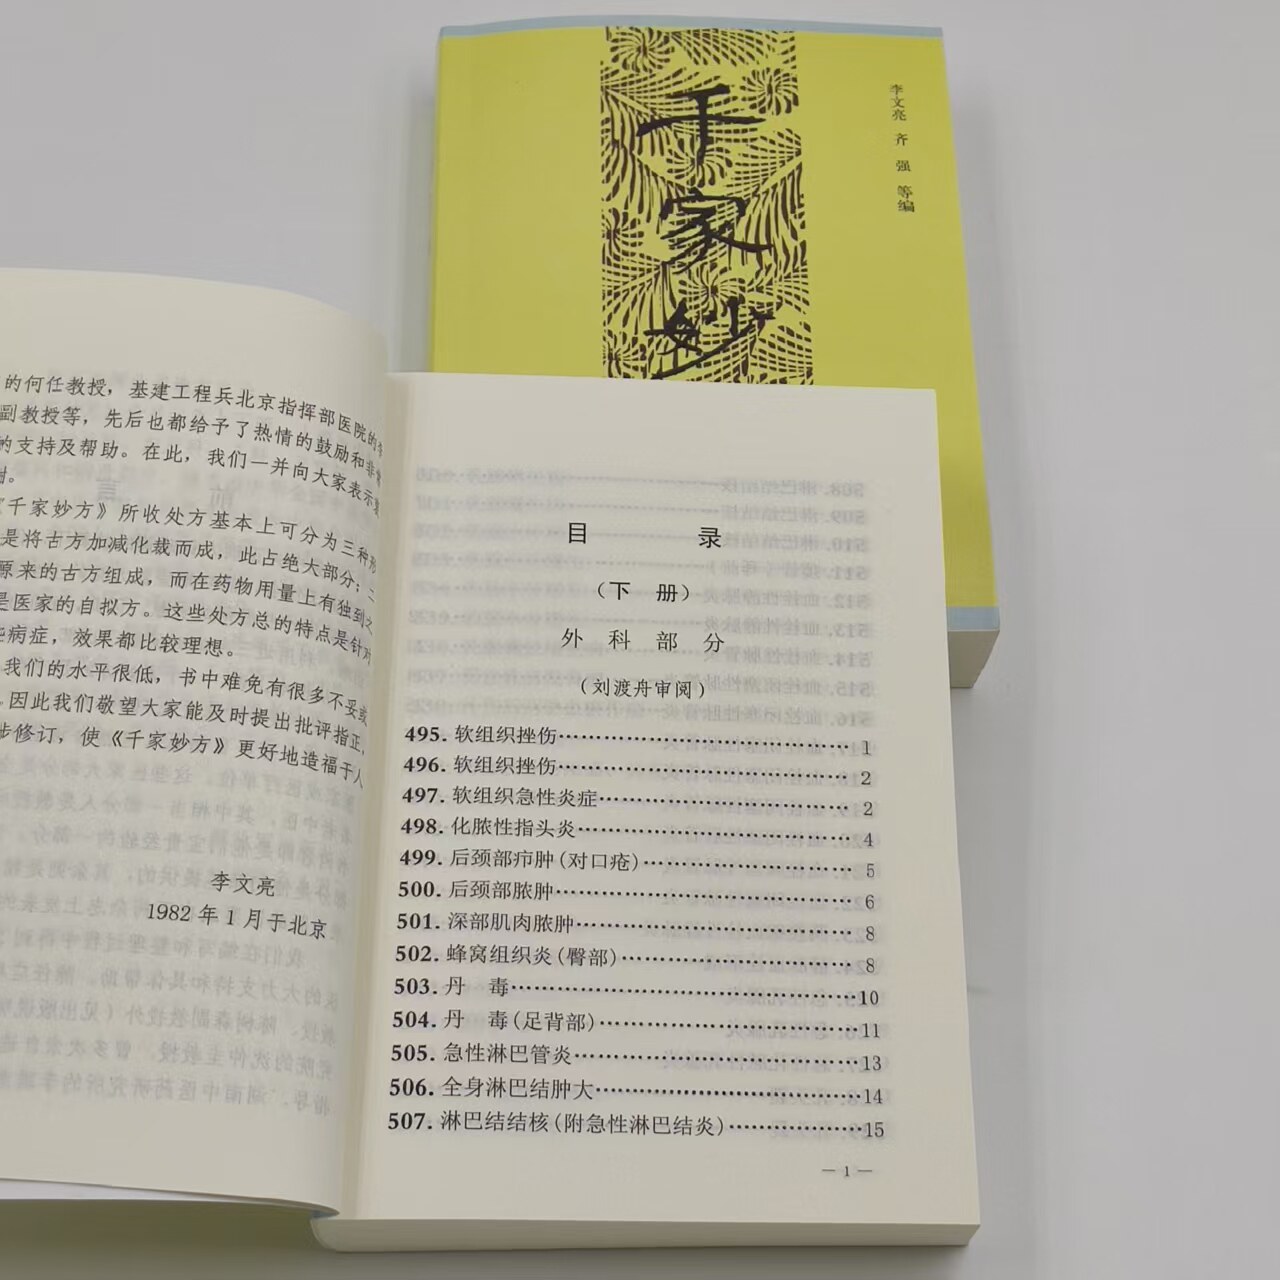 千家妙
李文亮 齐 强 等编
的何任教授，基建工程兵北京指挥部医院的
副教授等，先后也都给予了热情的鼓励和非常
的支持及帮助。在此，我们一并向大家表示
谢。
《千家妙方》所收处方基本上可分为三种形
是将古方加减化裁而成，此占绝大部分；二
原来的古方组成，而在药物用量上有独到之
是医家的自拟方。这些处方总的特点是针对
些病症，效果都比较理想。
我们的水平很低，书中难免有很多不妥或
。因此我们敬望大家能及时提出批评指正，
步修订，使《千家妙方》更好地造福于人
李文亮
1982 年 1 月于北京
目 录
（下 册）
外 科 部 分
（刘渡舟审阅）
495. 软组织挫伤……………………………… 1
496. 软组织挫伤……………………………… 2
497. 软组织急性炎症………………………… 2
498. 化脓性指头炎…………………………… 4
499. 后颈部疖肿（对口疮）………………… 5
500. 后颈部脓肿……………………………… 6
501. 深部肌肉脓肿…………………………… 8
502. 蜂窝组织炎（臀部）…………………… 8
503. 丹 毒……………………………………10
504. 丹 毒（足背部）………………………11
505. 急性淋巴管炎……………………………13
506. 全身淋巴结肿大…………………………14
507. 淋巴结结核（附急性淋巴结炎）………15
— 1 —